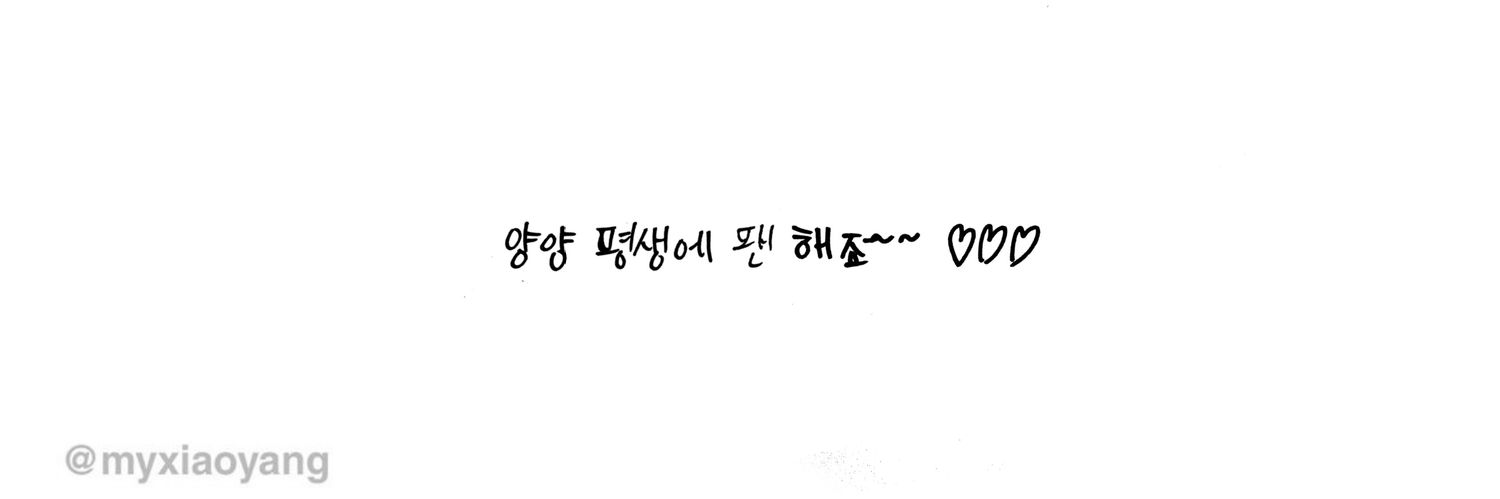 양양 평생에 팬 해죠~~ ♡♡♡
@myxiaoyang